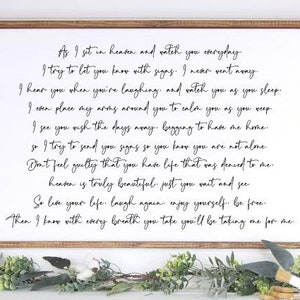 As I sit in heaven and watch you everyday
I try to let you know with signs, I never went away
I hear you when you're laughing, and watch you as you sleep,
I even place my arms around you to calm you as you weep
I see you wish the days away, begging to have me home,
so I try to send you signs so you know you are not alone.
Don't feel guilty that you have life that was denied to me,
heaven is truly beautiful, just you wait and see.
So live your life, laugh again, enjoy yourself, be free.
Then I know with every breath you take you'll be taking one for me